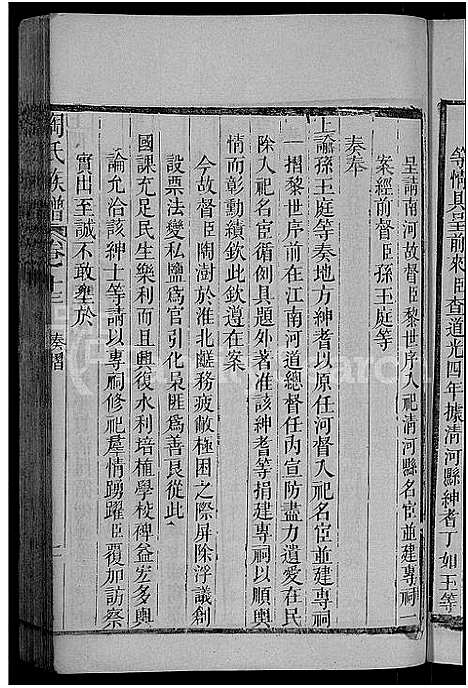 等情具呈前來臣查道光四年據清河縣紳耆丁如玉等
呈請南河故督臣黎世序入祀清河縣名宦並建專祠一
案經前督臣孫玉庭等
奏奉
上諭孫玉庭等奏地方紳耆以原任河督入祀名宦並建專祠
一摺黎世序前在江南河道總督任內宣防盡力遺愛在民
除入祀名宦循例具題外著准該紳耆等捐建專祠以順輿
情而彰勳績欽此欽遵在案
今故督臣陶澍於淮北鹺務疲敝極困之際屏除浮議創
設票法變私鹽為官引化梟匪為善良從此
國課充足民生樂利而且興復水利培植學校碑益宏多輿
論允洽該紳士等請以專祠修祀羣情踴躍臣覆加訪察
實出至誠不敢壅於
陶氏族譜 卷之十三 奏摺